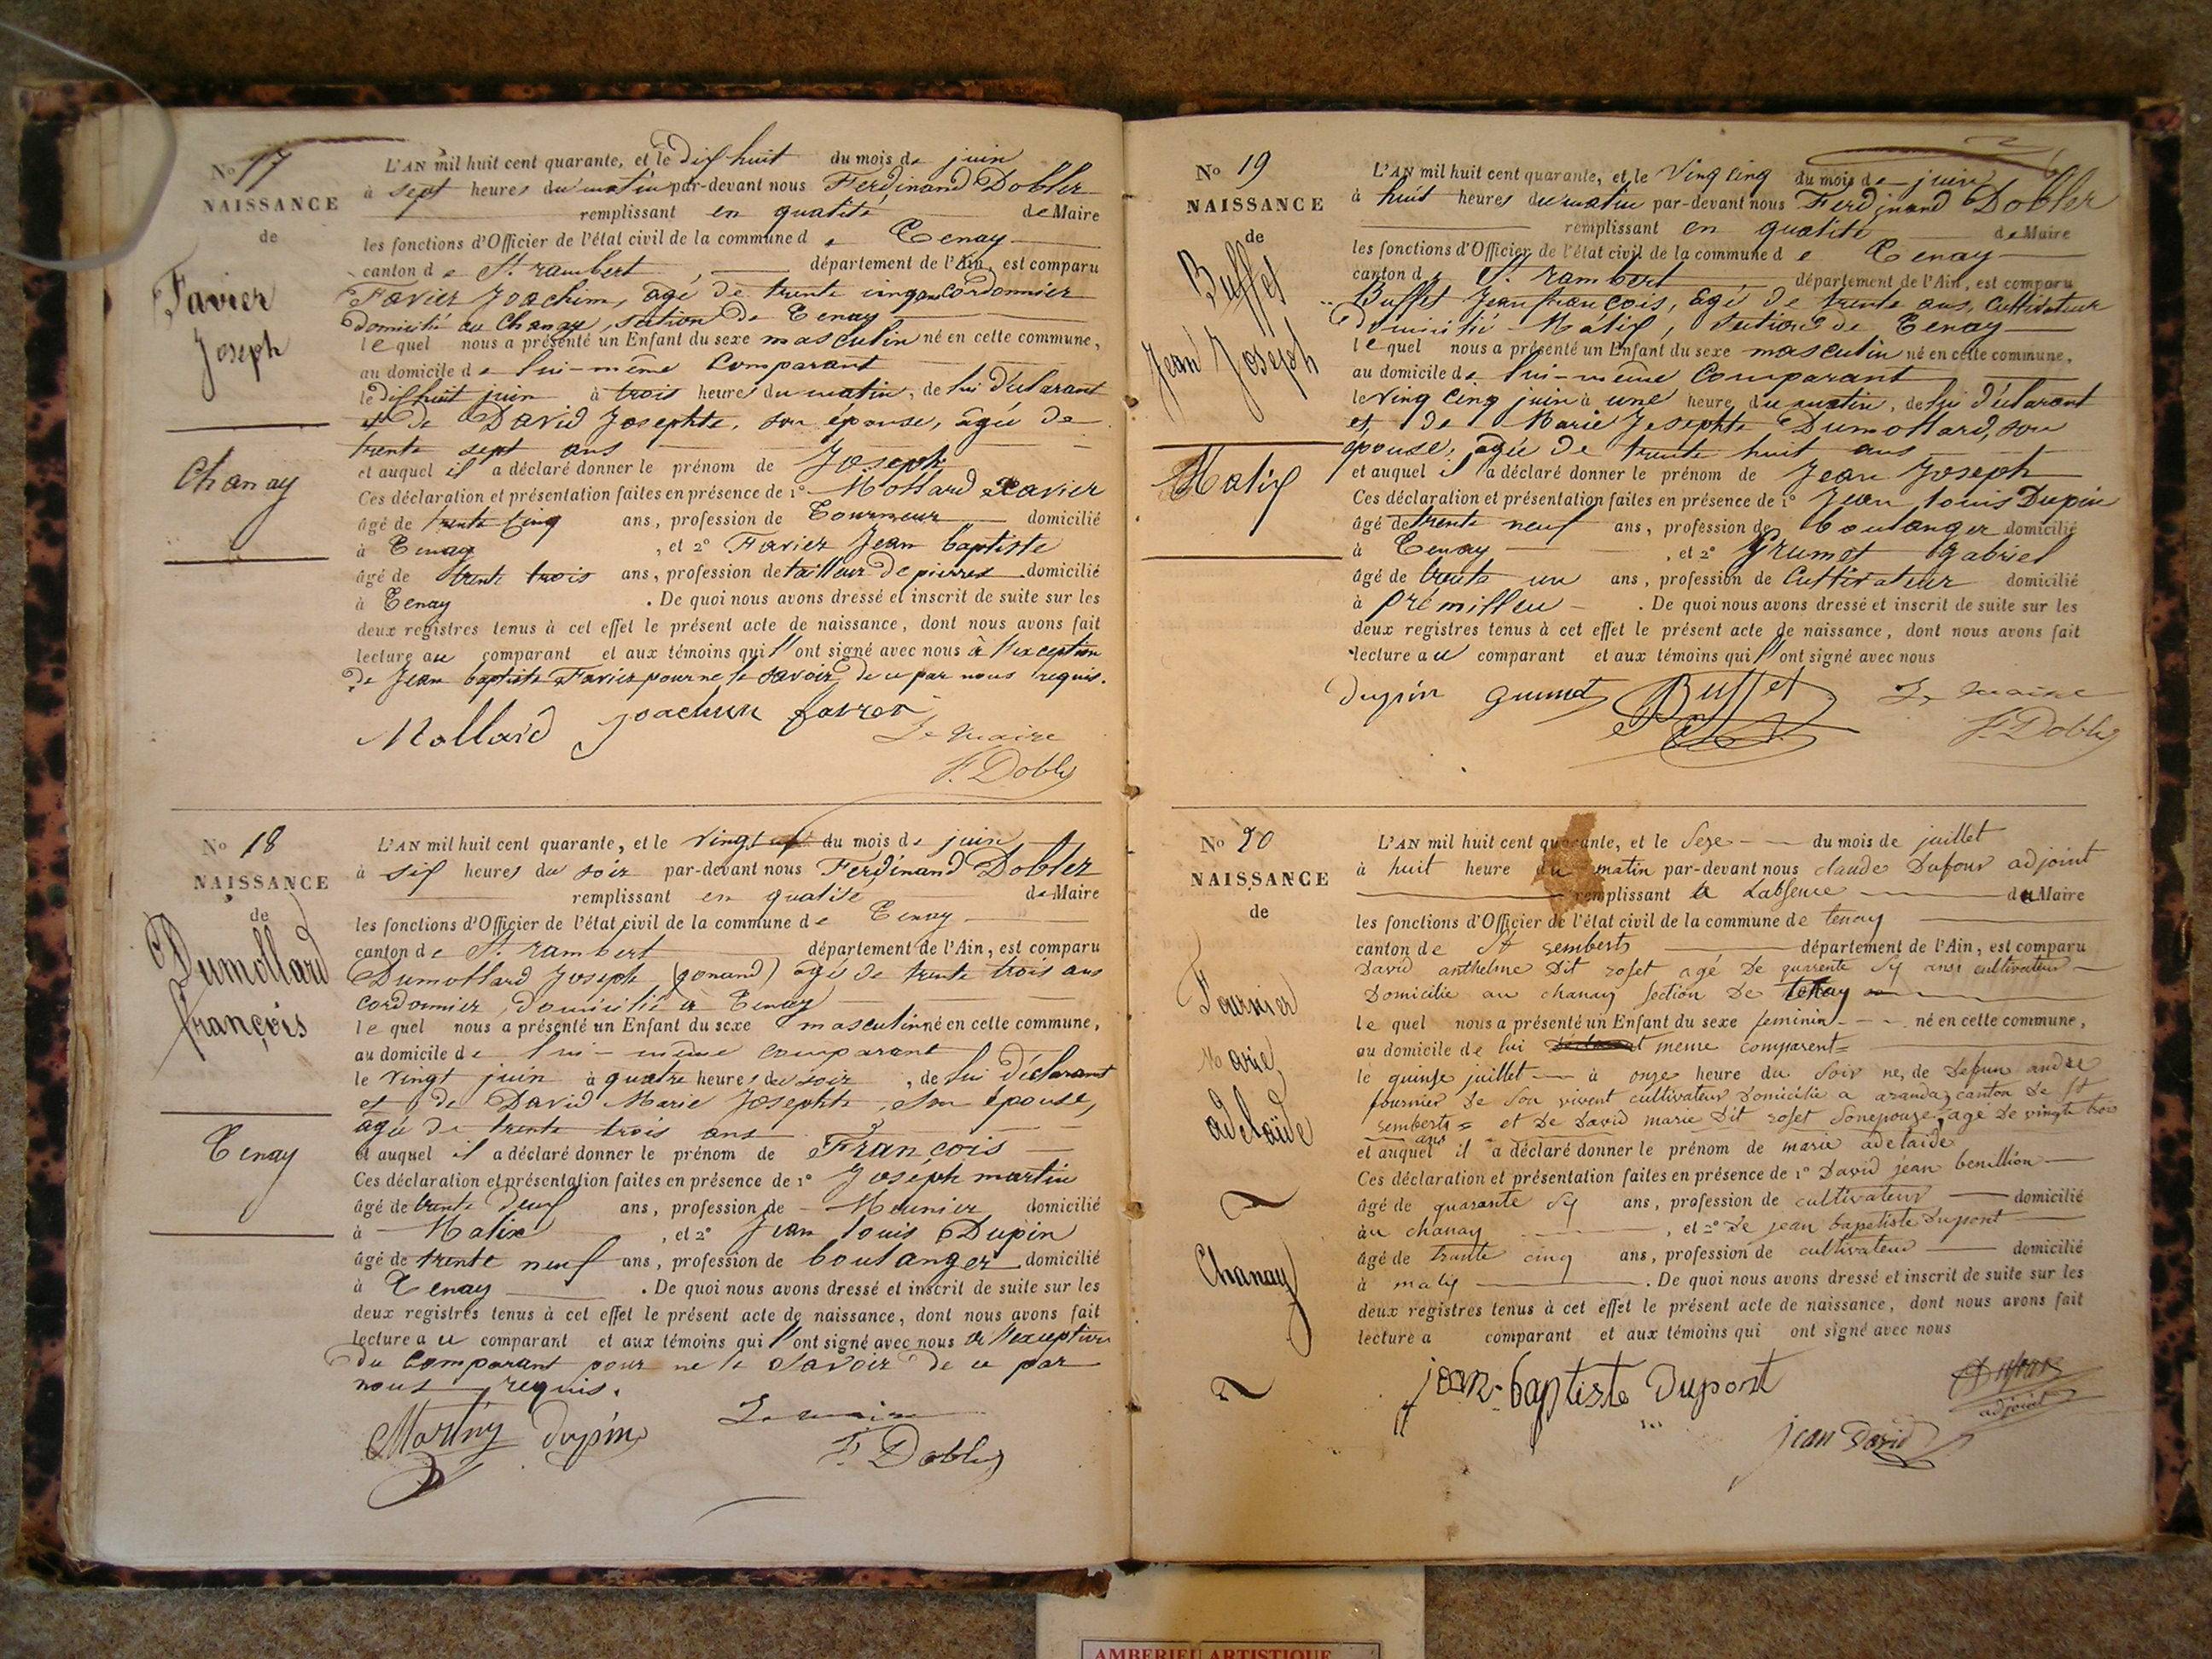 No 17
NAISSANCE
de
Favier
Joseph
Chanay
L'AN mil huit cent quarante, et le dix huit du mois de juin
à sept heures du matin par-devant nous Ferdinand Dobler
remplissant en qualité de Maire
les fonctions d'Officier de l'état civil de la commune de Tenay
canton de St. rambert, département de l'Ain, est comparu
Favier Joachim, agé de trente cinq ans Cordonnier
domicilié au Chanay, section de Tenay
lequel nous a présenté un Enfant du sexe masculin né en cette commune,
au domicile de lui-même Comparant
le dix huit juin à trois heures du matin, de lui déclarant
et de David Josephte, son épouse, âgée de
trente sept ans
et auquel il a déclaré donner le prénom de Joseph
Ces déclaration et présentation faites en présence de 1° Mollard Xavier
âgé de trente cinq ans, profession de Tourneur domicilié
à Tenay, et 2° Favier Jean baptiste
âgé de trente trois ans, profession de tailleur de pierres domicilié
à Tenay. De quoi nous avons dressé et inscrit de suite sur les
deux registres tenus à cet effet le présent acte de naissance, dont nous avons fait
lecture au comparant et aux témoins qui l'ont signé avec nous à l'exception
de Jean baptiste Favier pour ne le savoir de ce par nous requis.
Mollard joachim favier Le Maire
F. Dobler
No 18
NAISSANCE
de
Dumollard
françois
Tenay
L'AN mil huit cent quarante, et le vingt du mois de juin
à six heures du soir par-devant nous Ferdinand Dobler
remplissant en qualité de Maire
les fonctions d'Officier de l'état civil de la commune de Tenay
canton de St. rambert département de l'Ain, est comparu
Dumollard Joseph (gonand) agé de trente trois ans
cordonnier, domicilié à Tenay
lequel nous a présenté un Enfant du sexe masculin né en cette commune,
au domicile de lui-même comparant
le vingt juin à quatre heures du soir, de lui déclarant
et de David Marie Josephte, son épouse,
agée de trente trois ans
et auquel il a déclaré donner le prénom de François
Ces déclaration et présentation faites en présence de 1° Joseph martin
âgé de trente deux ans, profession de Meunier domicilié
à Malix, et 2° Jean louis Dupin
âgé de trente neuf ans, profession de boulanger domicilié
à Tenay. De quoi nous avons dressé et inscrit de suite sur les
deux registres tenus à cet effet le présent acte de naissance, dont nous avons fait
lecture au comparant et aux témoins qui l'ont signé avec nous à l'exception
du comparant pour ne le savoir de ce par
nous requis.
Martin dupin Le maire
F. Dobler
No 19
NAISSANCE
de
Buffet
Jean Joseph
Malix
L'AN mil huit cent quarante, et le Ving cinq du mois de juin
à huit heures du matin par-devant nous Ferdinand Dobler
remplissant en qualité de Maire
les fonctions d'Officier de l'état civil de la commune de Tenay
canton de St rambert département de l'Ain, est comparu
Buffet Jean françois, âgé de trente ans, Cultivateur
domicilié Malix, section de Tenay
lequel nous a présenté un Enfant du sexe masculin né en cette commune,
au domicile de lui-même Comparant
le Ving cinq juin à une heure du matin, de lui déclarant
et de Marie Josephte Dumollard, son
épouse, agée de trente huit ans
et auquel il a déclaré donner le prénom de Jean Joseph
Ces déclaration et présentation faites en présence de 1° Jean louis Dupin
âgé de trente neuf ans, profession de boulanger domicilié
à Tenay, et 2° Grumet Gabriel
âgé de trente un ans, profession de Cultivateur domicilié
à prémillieu. De quoi nous avons dressé et inscrit de suite sur les
deux registres tenus à cet effet le présent acte de naissance, dont nous avons fait
lecture au comparant et aux témoins qui l'ont signé avec nous
dupin grumet Buffet Le maire
F. Dobler
No 20
NAISSANCE
de
Fournier
Marie
adelaïde
Chanay
L'AN mil huit cent quarante, et le sese du mois de juillet
à huit heure du matin par-devant nous claude Dufour adjoint
remplissant a Labsence du Maire
les fonctions d'Officier de l'état civil de la commune de tenay
canton de St remberts département de l'Ain, est comparu
David anthelme dit roset agé de quarente sy ans cultivateur
Domicilie au chanay section De tenay
lequel nous a présenté un Enfant du sexe feminin né en cette commune,
au domicile de lui meme comparent
le quinse juillet à onze heure du soir ne, de Defun andre
fournier de son vivent cultivateur Domicilie a aranda canton de St
remberts et De David marie Dit roset son epouze age De vingte trois
ans
et auquel il a déclaré donner le prénom de marie adelaide
Ces déclaration et présentation faites en présence de 1° David jean benillion
âgé de quarante sy ans, profession de cultivateur domicilié
au chanay, et 2° de jean baptiste dupont
âgé de trante cinq ans, profession de cultivateur domicilié
à malix. De quoi nous avons dressé et inscrit de suite sur les
deux registres tenus à cet effet le présent acte de naissance, dont nous avons fait
lecture a comparant et aux témoins qui ont signé avec nous
jean-baptiste dupont Dufour
adjoint
jean David
AMBERIEU ARTISTIQUE